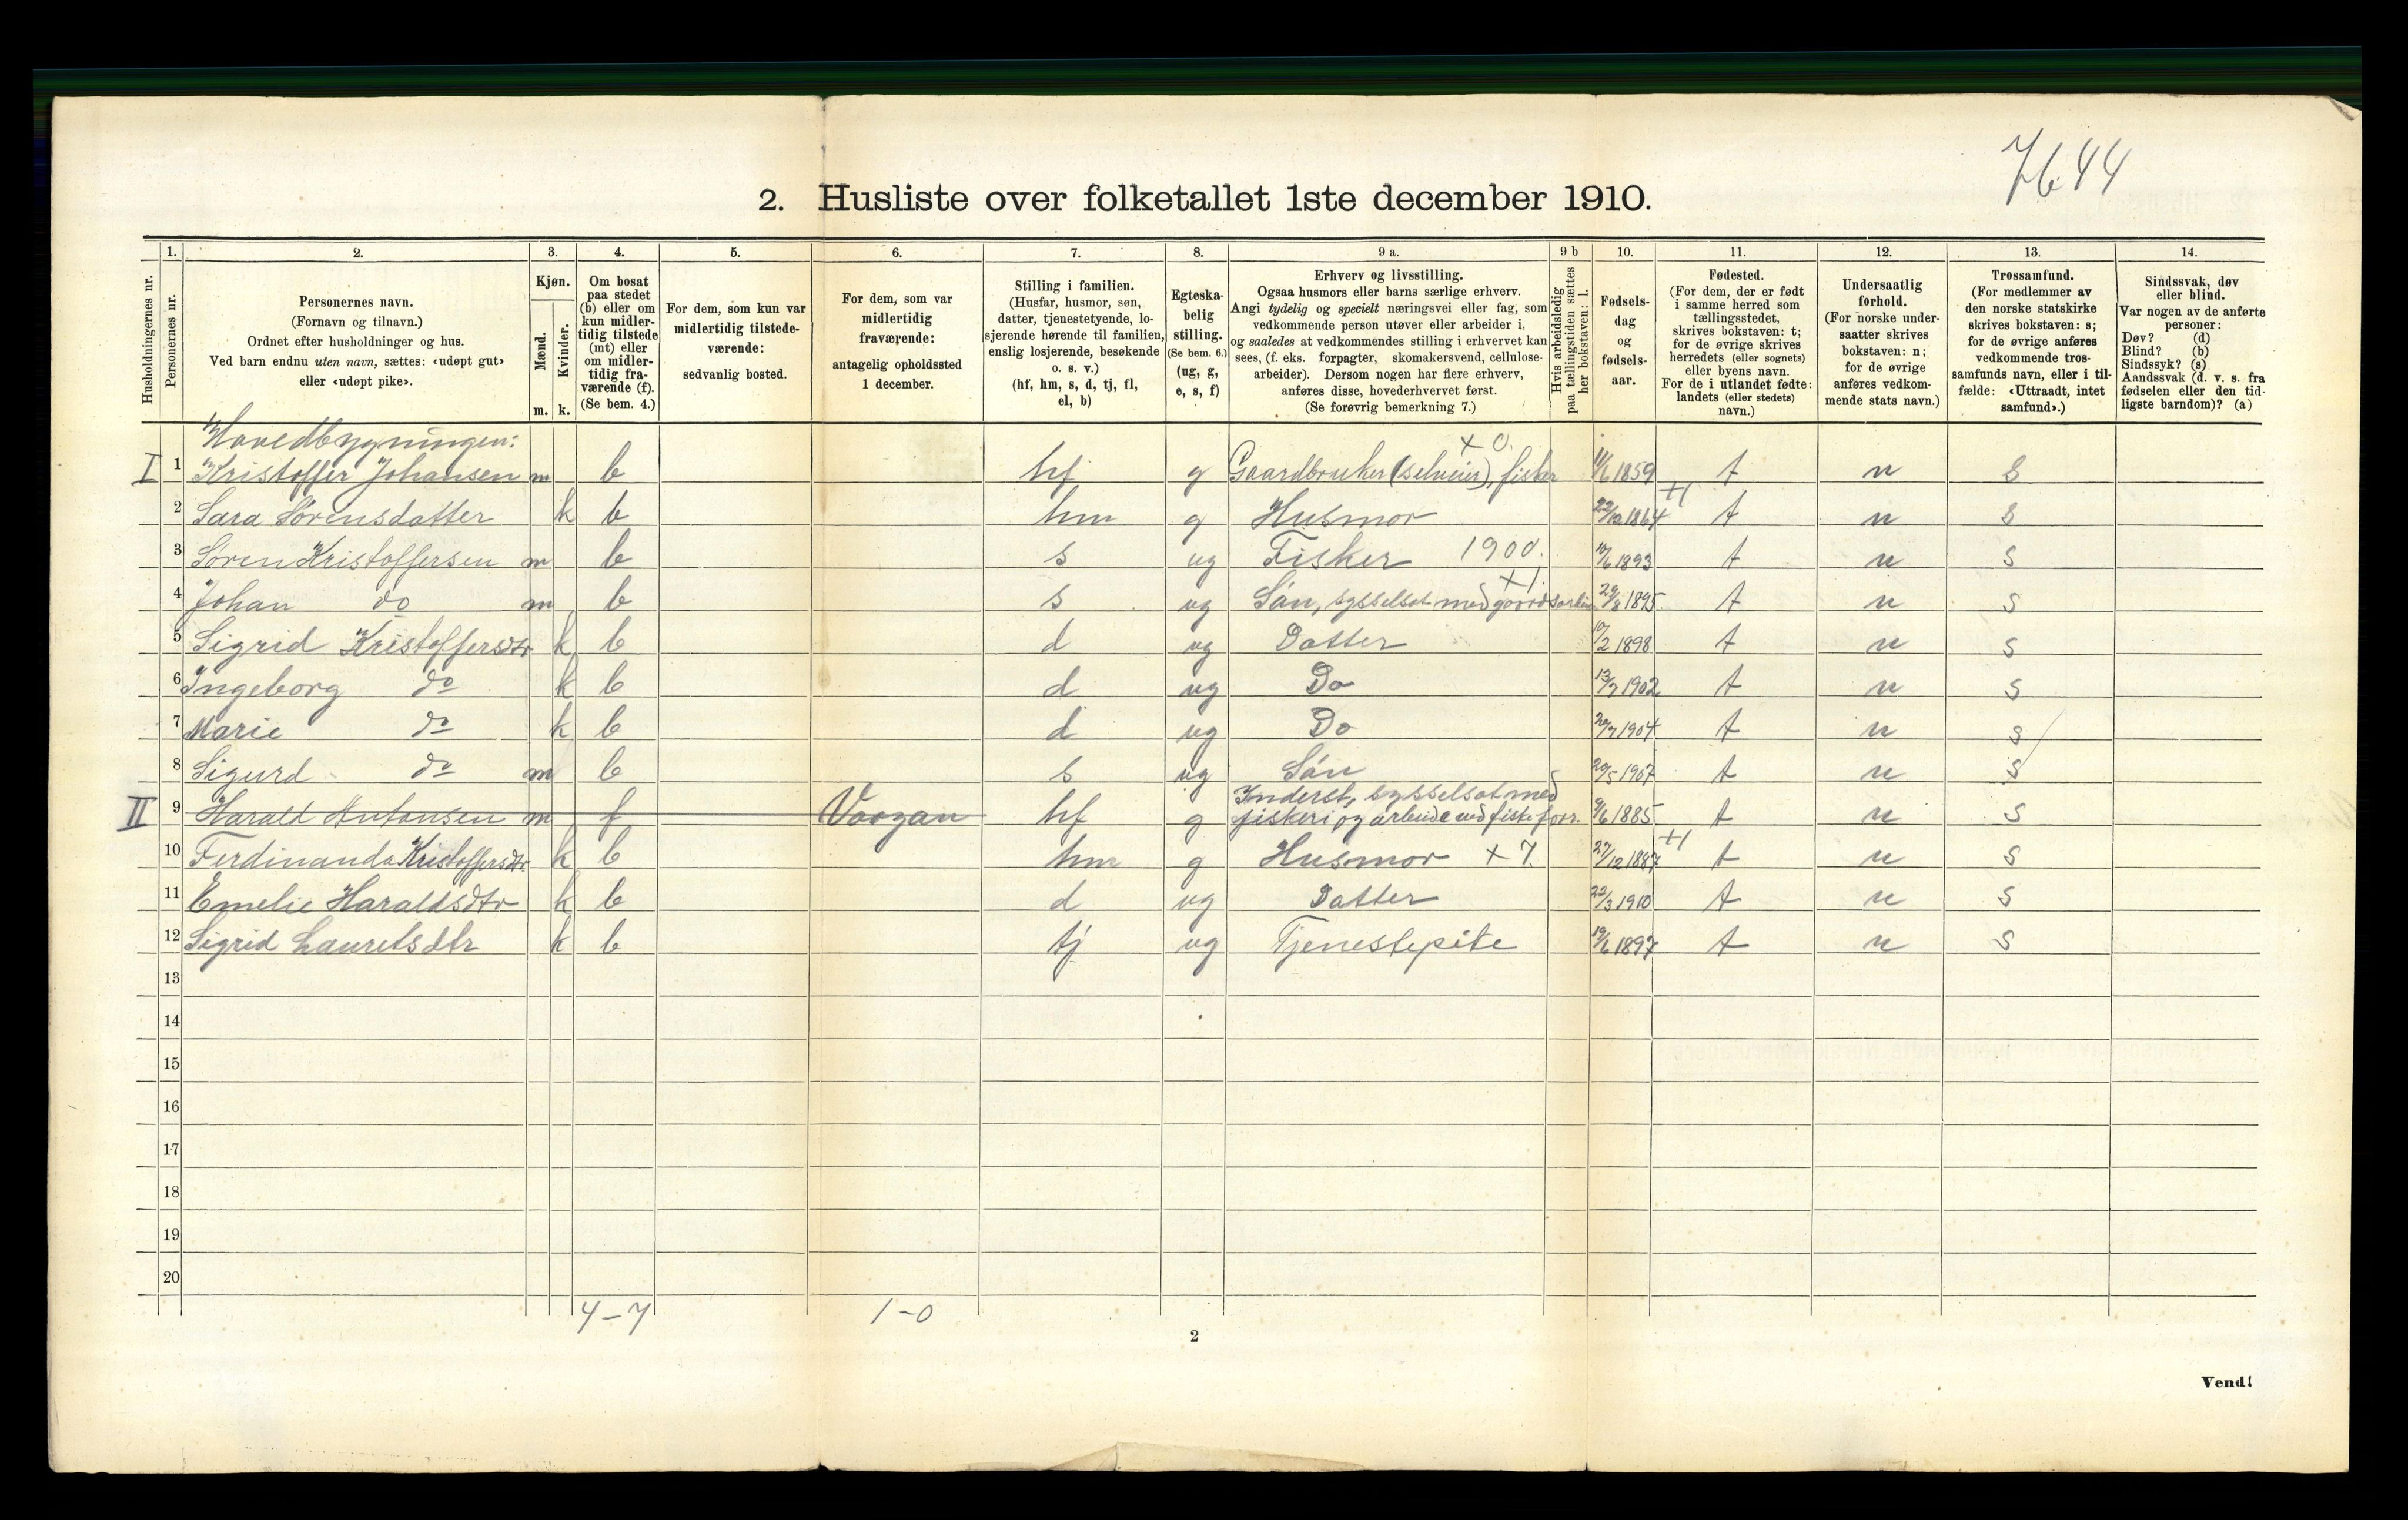 7644
2. Husliste over folketallet 1ste december 1910.
Husholdningernes nr.
1. Personernes nr.
2. Personernes navn.
(Fornavn og tilnavn.)
Ordnet efter husholdninger og hus.
Ved barn endnu uten navn, sættes: «udøpt gut»
eller «udøpt pike».
3. Kjøn.
Mænd. m.
Kvinder. k.
4. Om bosat
paa stedet
(b) eller om
kun midler-
tidig tilstede
(mt) eller
om midler-
tidig fra-
værende (f).
(Se bem. 4.)
5. For dem, som kun var
midlertidig tilstede-
værende:
sedvanlig bosted.
6. For dem, som var
midlertidig
fraværende:
antagelig opholdssted
1 december.
7. Stilling i familien.
(Husfar, husmor, søn,
datter, tjenestetyende, lo-
sjerende hørende til familien,
enslig losjerende, besøkende
o. s. v.)
(hf, hm, s, d, tj, fl,
el, b)
8. Egteska-
belig
stilling.
(Se bem. 6.)
(ug, g,
e, s, f)
9 a. Erhverv og livsstilling.
Ogsaa husmors eller barns særlige erhverv.
Angi tydelig og specielt næringsvei eller fag, som
vedkommende person utøver eller arbeider i,
og saaledes at vedkommendes stilling i erhvervet kan
sees, (f. eks. forpagter, skomakersvend, cellulose-
arbeider). Dersom nogen har flere erhverv,
anføres disse, hovederhvervet først.
(Se forøvrig bemerkning 7.)
9 b Hvis arbeidsledig
paa tællingstiden sættes
her bokstaven: l.
10. Fødsels-
dag
og
fødsels-
aar.
11. Fødested.
(For dem, der er født
i samme herred som
tællingsstedet,
skrives bokstaven: t;
for de øvrige skrives
herredets (eller sognets)
eller byens navn.
For de i utlandet fødte:
landets (eller stedets)
navn.)
12. Undersaatlig
forhold.
(For norske under-
saatter skrives
bokstaven: n;
for de øvrige
anføres vedkom-
mende stats navn.)
13. Trossamfund.
(For medlemmer av
den norske statskirke
skrives bokstaven: s;
for de øvrige anføres
vedkommende tros-
samfunds navn, eller i til-
fælde: «Uttraadt, intet
samfund».)
14. Sindssvak, døv
eller blind.
Var nogen av de anførte
personer:
Døv? (d)
Blind? (b)
Sindssyk? (s)
Aandssvak (d. v. s. fra
fødselen eller den tid-
ligste barndom)? (a)
Hovedbygningen: x 0.
I 1 Kristoffer Johansen m b hf g Gaardbruker (selveier), fisker 11/6 1859 t n s
2 Sara Sørensdatter k b hm g Husmor 22/12 1864 +1 t n s
3 Søren Kristoffersen m b s ug Fisker 1900. 10/6 1893 t n s
4 Johan do m b s ug Søn, sysselsat med gaardsarbeide x 1. 29/8 1895 t n s
5 Sigrid Kristoffersdtr k b d ug Datter 10/2 1898 t n s
6 Ingeborg do k b d ug Do 13/7 1902 t n s
7 Marie do k b d ug Do 20/7 1904 t n s
8 Sigurd do m b s ug Søn 20/5 1907 t n s
II 9 Harald Antonsen m f Vaagan hf g Inderst, sysselsat med
fiskeri og arbeide ved fiskeforr. 9/6 1885 t n s
10 Ferdinanda Kristoffersdtr. k b hm g Husmor x 7. 27/12 1887 +1 t n s
11 Emelie Haraldsdtr k b d ug Datter 22/3 1910 t n s
12 Sigrid Lauretsdtr k b tj ug Tjenestepike 19/6 1897 t n s
13
14
15
16
17
18
19
20
4-7 1-0
2
Vend!